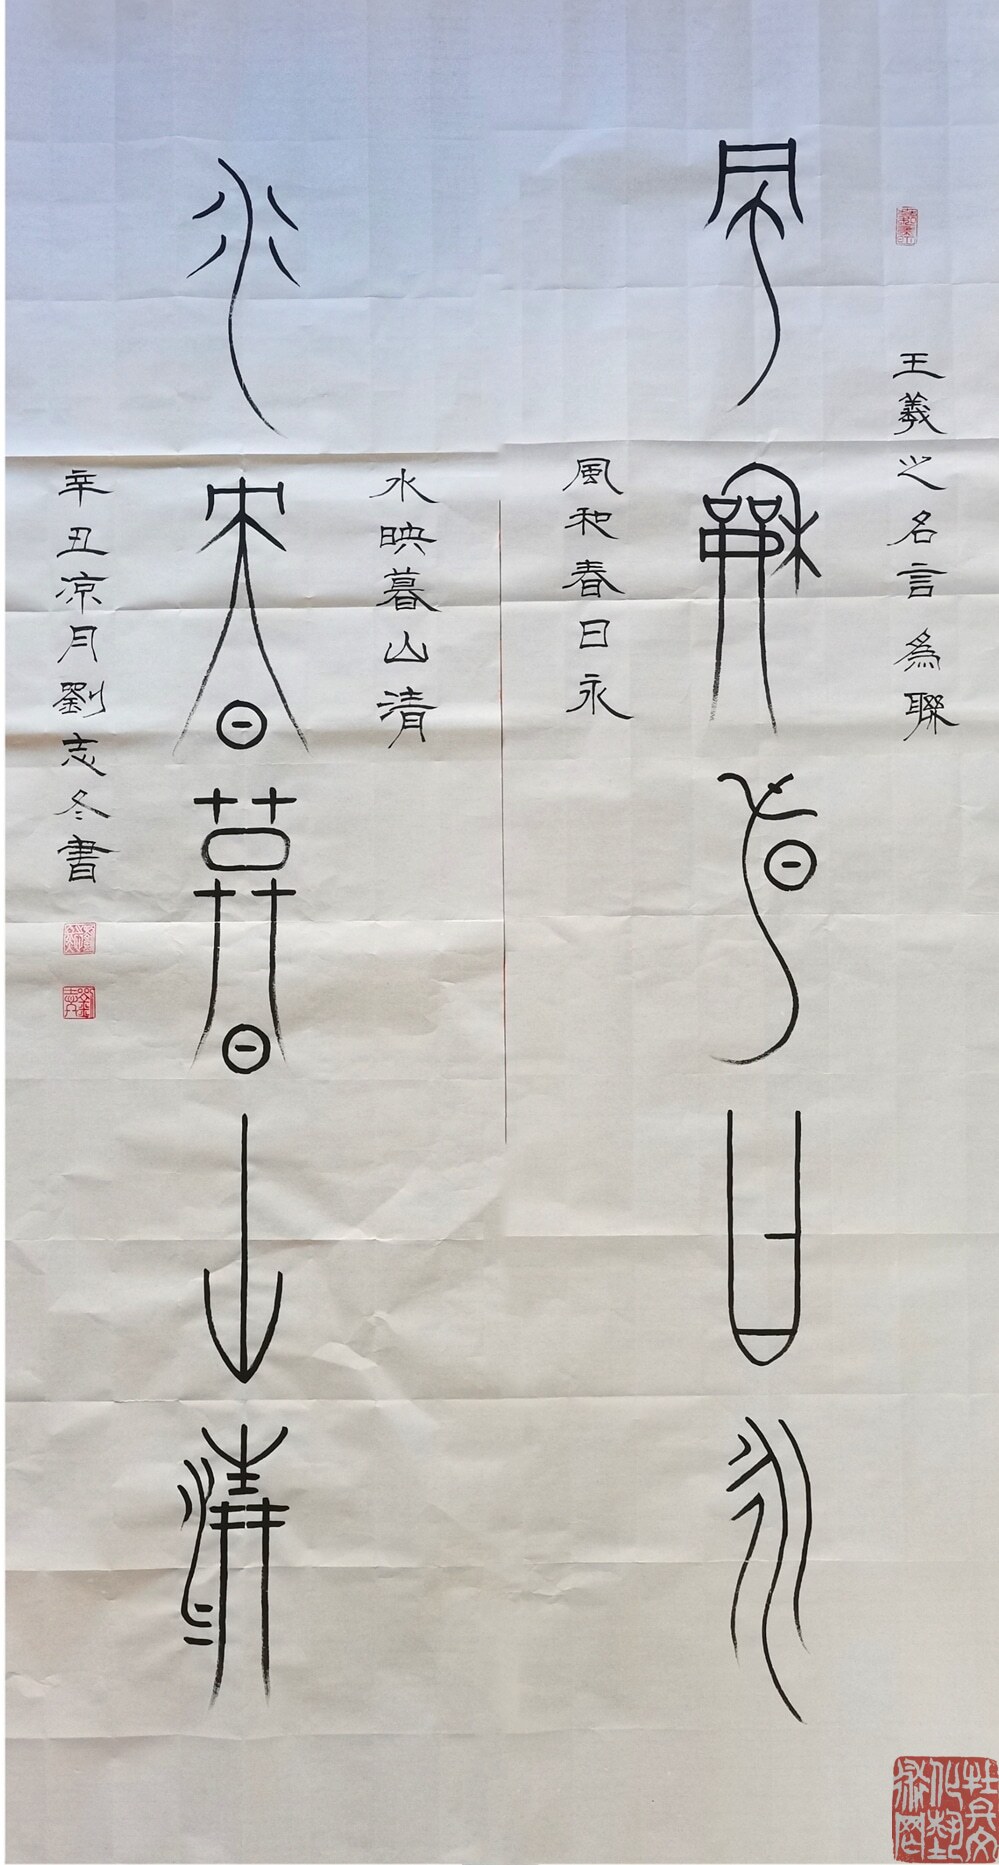 王羲之名言為聯
風和春日永
風和春日永
水映暮山清
水映暮山清
辛丑凉月劉志冬書